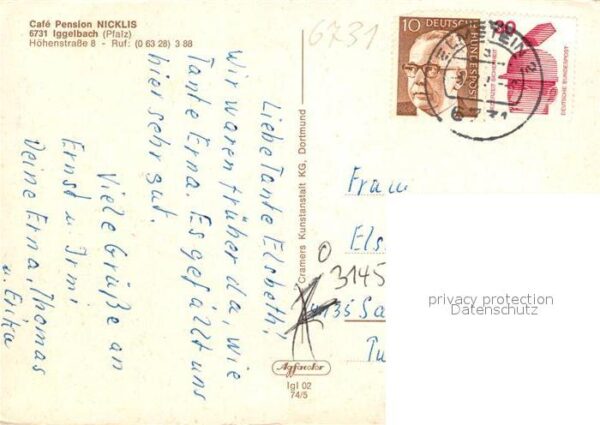 Café Pension NICKLIS
6731 Iggelbach (Pfalz)
Höhenstraße 8 - Ruf: (0 63 28) 3 88
6731
Liebe Tante Elsbeth!
Wir waren früher da, wie
Tante Erna. Es gefällt uns
hier sehr gut.
Viele Grüße an
Ernst u. Irmi
Deine Erna, Thomas
u. Erika
Cramers Kunstanstalt KG, Dortmund
Agfacolor
Igl 02
74/5
10
DEUTSCHE BUNDESPOST
20
DEUTSCHE BUNDESPOST
Frau
Els
0
3145
Sa
privacy protection
Datenschutz